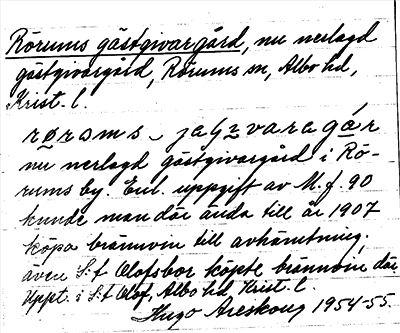 Rörums gästgivargård, nu nerlagd
gästgivargård, Rörums sn, Albo hd,
Krist. l.
nu nerlagd gästgivargård i Rö-
rums by. Enl. uppgift av M. f. 90
kunde man där ända till år 1907
köpa brännvin till avhämtning,
även S:t Olofsbor köpte brännvin där
Uppt. i S:t Olof, Albo hd Krist. l.
Hugo Areskoug 1954-55.